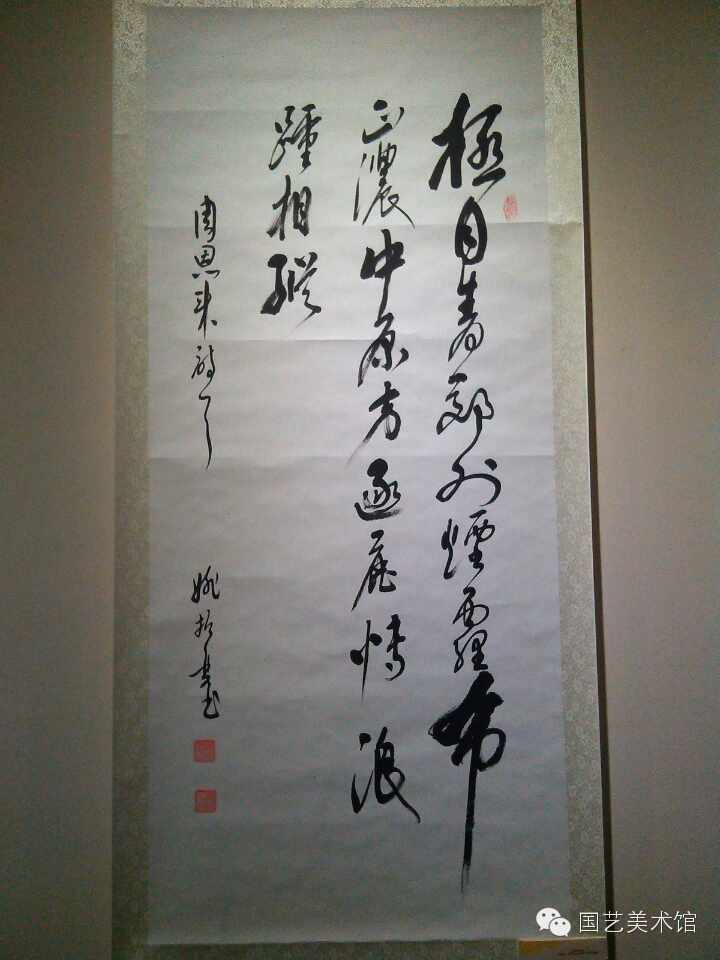 極目青郊外煙霾布
正濃中原方逐鹿博浪
踵相縱
周恩来詩
姚 書
国艺美术馆